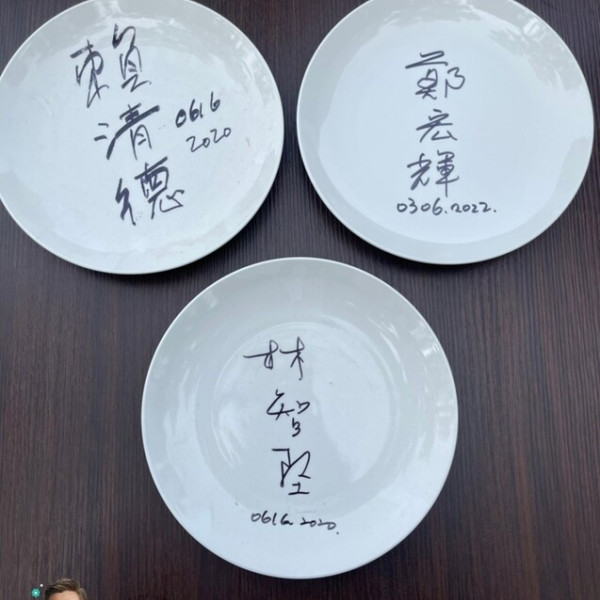 賴清德
0616
2020
鄭宏輝
0306.2022.
林智堅
0616.2020.